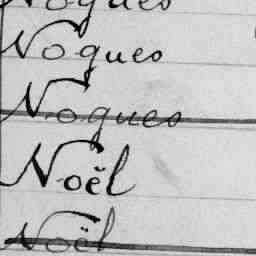 Nogues
Nogues
Nogues
Noël
Noël